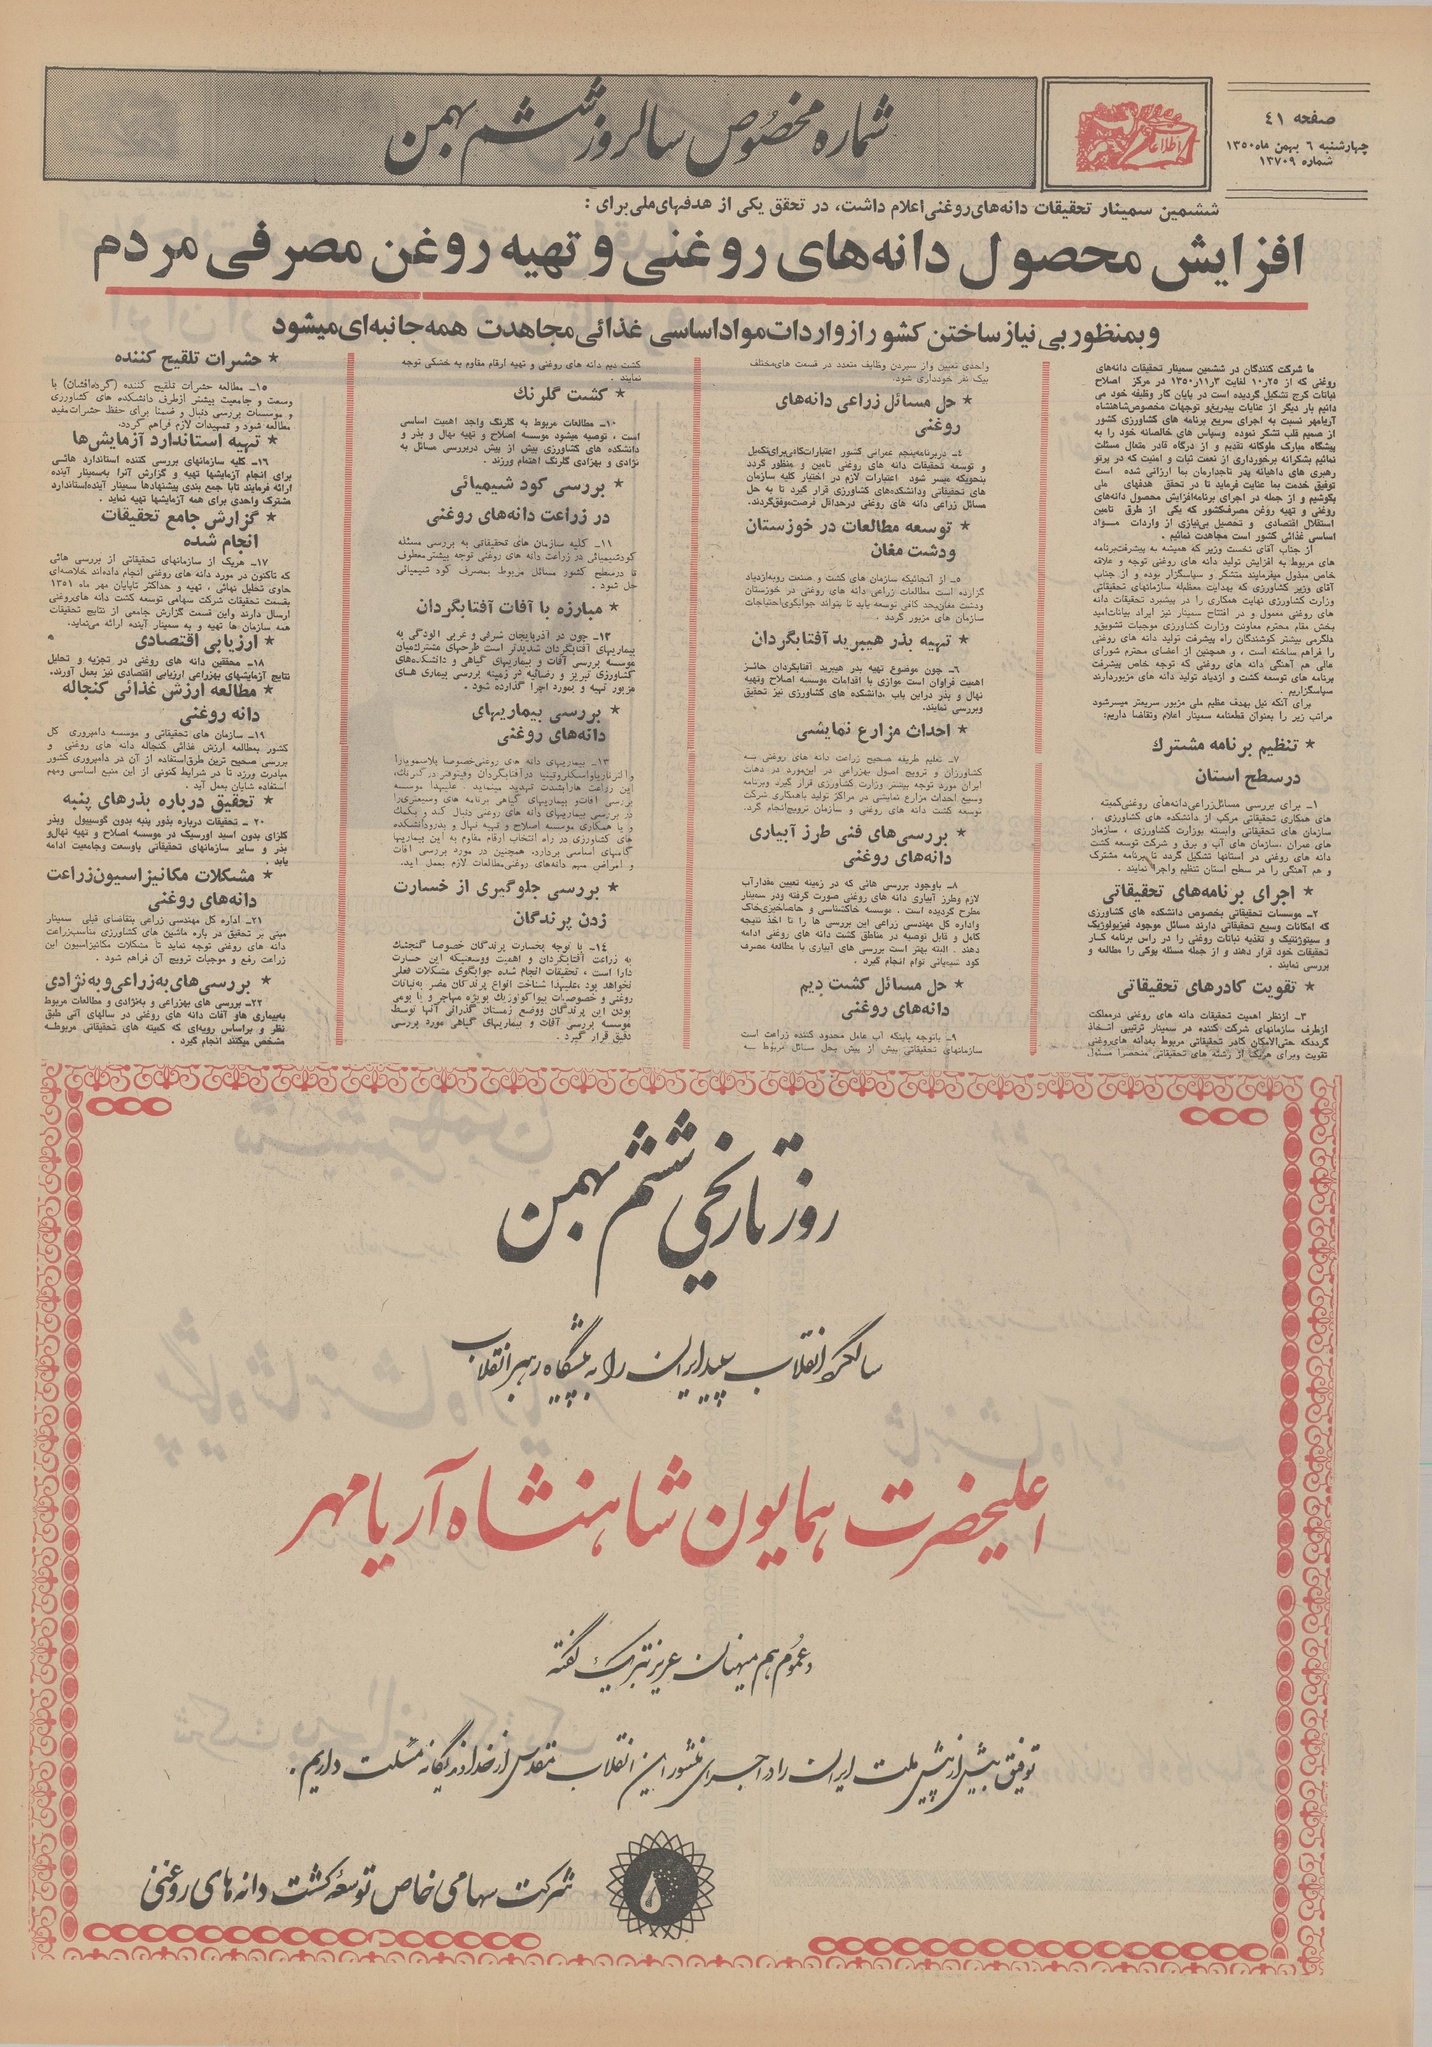 صفحه ٤١
چهارشنبه ٦ بهمن ماه ١٣٥٠
شماره ١٣٧٠٩
اطلاعات
شماره مخصوص سالروز ششم بهمن
ششمین سمینار تحقیقات دانه‌های روغنی اعلام داشت، در تحقق یکی از هدفهای ملی برای :
افزایش محصول دانه‌های روغنی و تهیه روغن مصرفی مردم
وبمنظور بی نیاز ساختن کشور از واردات مواد اساسی غذائی مجاهدت همه جانبه‌ای میشود
ما شرکت کنندگان در ششمین سمینار تحقیقات دانه‌های
روغنی که از ٢٥ر١٠ لغایت ٣ر١١ر١٣٥٠ در مرکز اصلاح
نباتات کرج تشکیل گردیده است در پایان کار وظیفه خود می
دانیم بار دیگر از عنایات بیدریغ و توجهات مخصوص شاهنشاه
آریامهر نسبت به اجرای سریع برنامه های کشاورزی کشور
از صمیم قلب تشکر نموده وسپاس های خالصانه خود را به
پیشگاه مبارک ملوکانه تقدیم و از درگاه قادر متعال مسئلت
نمائیم بشکرانه برخورداری از نعمت ثبات و امنیت که در پرتو
رهبری های داهیانه پدر تاجدارمان بما ارزانی شده است
توفیق خدمت بما عنایت فرماید تا در تحقق هدفهای ملی
بکوشیم و از جمله در اجرای برنامه افزایش محصول دانه‌های
روغنی و تهیه روغن مصرف کشور که یکی از طرق تامین
استقلال اقتصادی و تحصیل بی‌نیازی از واردات مواد
اساسی غذائی کشور است مجاهدت نمائیم .
از جناب آقای نخست وزیر که همیشه به پیشرفت برنامه
های مربوط به افزایش تولید دانه های روغنی توجه و علاقه
خاص مبذول میفرمایند متشکر و سپاسگزار بوده و از جناب
آقای وزیر کشاورزی که بهدایت معظم‌له سازمانهای تحقیقاتی
وزارت کشاورزی نهایت همکاری را در پیشبرد تحقیقات دانه
های روغنی معمول و در افتتاح سمینار نیز ایراد بیانات امید
بخش مقام محترم معاونت وزارت کشاورزی موجبات تشویق و
دلگرمی بیشتر کوشندگان راه پیشرفت تولید دانه های روغنی
را فراهم ساخته است ، و همچنین از اعضای محترم شورای
عالی هم آهنگی دانه های روغنی که توجه خاص پیشرفت
برنامه های توسعه کشت و ازدیاد تولید دانه های مزبور دارند
سپاسگزاریم .
برای آنکه نیل بهدف عظیم ملی مزبور سریعتر میسر شود
مراتب زیر را بعنوان قطعنامه سمینار اعلام وتقاضا داریم:
★ تنظیم برنامه مشترك
درسطح استان
١- برای بررسی مسائل زراعی دانه‌های روغنی کمیته
های همکاری تحقیقاتی مرکب از دانشکده های کشاورزی ،
سازمان های تحقیقاتی وابسته بوزارت کشاورزی ، سازمان
های عمران ، سازمان های آب و برق و شرکت توسعه کشت
دانه های روغنی در استانها تشکیل گردد تا برنامه مشترک
و هم آهنگی را در سطح استان تنظیم واجرا نمایند .
★ اجرای برنامه‌های تحقیقاتی
٢- موسسات تحقیقاتی بخصوص دانشکده های کشاورزی
که امکانات وسیع تحقیقاتی دارند مسائل موجود فیزیولوژیک
و سیتوژنتیک و تغذیه نباتات روغنی را در راس برنامه کار
تحقیقات خود قرار دهند و از جمله مسئله پوکی را مطالعه و
بررسی نمایند .
★ تقویت کادرهای تحقیقاتی
٣- ازنظر اهمیت تحقیقات دانه های روغنی درمملکت
ازطرف سازمانهای شرکت کننده در سمینار ترتیبی اتخاذ
گرددکه حتی‌الامکان کادر تحقیقاتی مربوط به‌دانه های‌روغنی
تقویت وبرای هریک از رشته های تحقیقاتی منحصرا مسئول
واحدی تعیین واز سپردن وظایف متعدد در قسمت های‌مختلف
بیک نفر خودداری شود.
★ حل مسائل زراعی دانه‌های
روغنی
٤- دربرنامه‌پنجم عمرانی کشور اعتبارات‌کافی‌برای‌تکمیل
و توسعه تحقیقات دانه های روغنی تامین و منظور گردد
بنحویکه میسر شود اعتبارات لازم در اختیار کلیه سازمان
های تحقیقاتی ودانشکده‌های کشاورزی قرار گیرد تا به حل
مسائل زراعی دانه های روغنی درحداقل فرصت‌موفق‌گردند.
★ توسعه مطالعات در خوزستان
ودشت مغان
٥- از آنجائیکه سازمان های کشت و صنعت روبه‌ازدیاد
گزارده است مطالعات زراعی دانه های روغنی در خوزستان
ودشت مغان‌بحد کافی توسعه یابد تا بتواند جوابگوی‌احتیاجات
سازمان های مزبور گردد .
★ تهیه بذر هیبرید آفتابگردان
٦- چون موضوع تهیه بذر هیبرید آفتابگردان حائز
اهمیت فراوان است موازی با اقدامات موسسه اصلاح وتهیه
نهال و بذر دراین باب ،دانشکده های کشاورزی نیز تحقیق
وبررسی نمایند.
★ احداث مزارع نمایشی
٧- تعلیم طریقه صحیح زراعت دانه های روغنی به
کشاورزان و ترویج اصول بهزراعی در این‌مورد در دهات
ایران مورد توجه بیشتر وزارت کشاورزی قرار گیرد وبرنامه
وسیع احداث مزارع نمایشی در مراکز تولید باهمکاری شرکت
توسعه کشت دانه های روغنی و سازمان ترویج‌انجام گردد.
★ بررسی‌های فنی طرز آبیاری
دانه‌های روغنی
٨- باوجود بررسی هائی که در زمینه تعیین مقدارآب
لازم وطرز آبیاری دانه های روغنی صورت گرفته ودر سمینار
مطرح گردیده است ، موسسه خاکشناسی و حاصلخیزی‌خاک
واداره کل مهندسی زراعی این بررسی ها را تا اخذ نتیجه
کامل و قابل توصیه در مناطق کشت دانه های روغنی ادامه
دهند . البته بهتر است بررسی های آبیاری با مطالعه مصرف
کود شیمیائی توام انجام گیرد .
★ حل مسائل کشت دیم
دانه‌های روغنی
٩- باتوجه باینکه آب عامل محدود کننده زراعت است
سازمانهای تحقیقاتی بیش از پیش بحل مسائل مربوط به
کشت دیم دانه های روغنی و تهیه ارقام مقاوم به خشکی توجه
نمایند .
★ کشت گلرنك
١٠- مطالعات مربوط به گلرنگ واجد اهمیت اساسی
است ، توصیه میشود موسسه اصلاح و تهیه نهال و بذر و
دانشکده های کشاورزی بیش از پیش دربررسی مسائل به
نژادی و بهزادی گلرنگ اهتمام ورزند .
★ بررسی کود شیمیائی
در زراعت دانه‌های روغنی
١١- کلیه سازمان های تحقیقاتی به بررسی مسئله
کودشیمیائی در زراعت دانه های روغنی توجه بیشتر معطوف
تا درسطح کشور مسائل مربوط بمصرف کود شیمیائی
حل شود .
★ مبارزه با آفات آفتابگردان
١٢- چون در آذربایجان شرقی و غربی آلودگی به
بیماریهای آفتابگردان شدیدتر است طرحهای مشترک‌میان
موسسه بررسی آفات و بیماریهای گیاهی و دانشکده‌های
کشاورزی تبریز و رضائیه در زمینه بررسی بیماری های
مزبور تهیه و بمورد اجرا گذارده شود .
★ بررسی بیماریهای
دانه‌های روغنی
١٣- بیماریهای دانه های روغنی خصوصا پلاسموپارا
و آلترناریا واسکلروتینیا در آفتابگردان وفیتوفتر در گلرنک،
این زراعت هارا بشدت تهدید مینماید . علیهذا موسسه
بررسی آفات‌و بیماریهای گیاهی برنامه های وسیعتری‌را
در بررسی بیماریهای دانه های روغنی دنبال کند و بکمک
و یا همکاری موسسه اصلاح و تهیه نهال و بذرودانشکده
های کشاورزی در راه انتخاب ارقام مقاوم به این بیماریها
گامهای اساسی بردارد. همچنین در مورد بررسی آفات
و امراض مهم دانه‌های روغنی مطالعات لازم بعمل آید.
★ بررسی جلوگیری از خسارت
زدن پرندگان
١٤- با توجه بخسارت پرندگان خصوصا گنجشك
به زراعت آفتابگردان و اهمیت ووسعتیکه این خسارت
دارا است ، تحقیقات انجام شده جوابگوی مشکلات فعلی
نخواهد بود ،علیهذا شناخت انواع پرندگان مضر به‌نباتات
روغنی و خصوصیات بیواکولوژیک بویژه مهاجر و یا بومی
بودن این پرندگان ووضع زمستان گذرانی آنها توسط
موسسه بررسی آفات و بیماریهای گیاهی مورد بررسی
دقیق قرار گیرد .
★ حشرات تلقیح کننده
١٥- مطالعه حشرات تلقیح کننده (گرده‌افشان) با
وسعت و جامعیت بیشتر ازطرف دانشکده های کشاورزی
و موسسات بررسی دنبال و ضمنا برای حفظ حشرات‌مفید
مطالعه شود و تسهیلات لازم فراهم گردد.
★ تهیه استاندارد آزمایش‌ها
١٦- کلیه سازمانهای بررسی کننده استاندارد هائی
برای انجام آزمایشها تهیه و گزارش آنرا به‌سمینار آینده
ارائه فرمایند تابا جمع بندی پیشنهادها سمینار آینده‌استاندارد
مشترک واحدی برای همه آزمایشها تهیه نماید .
★ گزارش جامع تحقیقات
انجام شده
١٧- هریک از سازمانهای تحقیقاتی از بررسی هائی
که تاکنون در مورد دانه های روغنی انجام داده‌اند خلاصه‌ای
حاوی تحلیل نهائی ، تهیه و حداکثر تاپایان مهر ماه ١٣٥١
بقسمت تحقیقات شرکت سهامی توسعه کشت دانه های‌روغنی
ارسال دارند واین قسمت گزارش جامعی از نتایج تحقیقات
همه سازمان ها تهیه و به سمینار آینده ارائه می‌نماید.
★ ارزیابی اقتصادی
١٨- محققین دانه های روغنی در تجزیه و تحلیل
نتایج آزمایشهای بهزراعی ارزیابی اقتصادی نیز بعمل آورند.
★ مطالعه ارزش غذائی کنجاله
دانه روغنی
١٩- سازمان های تحقیقاتی و موسسه دامپروری کل
کشور بمطالعه ارزش غذائی کنجاله دانه های روغنی و
بررسی صحیح ترین طرق‌استفاده از آن در دامپروری کشور
مبادرت ورزد تا در شرایط کنونی از این منبع اساسی ومهم
استفاده شایان بعمل آید .
★ تحقیق درباره بذرهای پنبه
٢٠ - تحقیقات درباره بذور پنبه بدون گوسیپول وبذر
کلزای بدون اسید اورسیک در موسسه اصلاح و تهیه نهال‌و
بذر و سایر سازمانهای تحقیقاتی باوسعت وجامعیت ادامه
یابد .
★ مشکلات مکانیزاسیون زراعت
دانه‌های روغنی
٢١- اداره کل مهندسی زراعی بتقاضای قبلی سمینار
مبنی بر تحقیق در باره ماشین های کشاورزی مناسب‌زراعت
دانه های روغنی توجه نماید تا مشکلات مکانیزاسیون این
زراعت رفع و موجبات ترویج آن فراهم شود .
★ بررسی‌های به‌زراعی‌و به‌نژادی
٢٢- بررسی های بهزراعی و به‌نژادی و مطالعات مربوط
به‌بیماری هاو آفات دانه های روغنی در سالهای آتی طبق
نظر و براساس رویه‌ای که کمیته های تحقیقاتی مربوطه
مشخص میکنند انجام گیرد .
روز تاریخی ششم بهمن
سالگرد انقلاب سپید ایران را به پیشگاه رهبر انقلاب
اعلیحضرت همایون شاهنشاه آریامهر
و عموم هم میهنان عزیز تبریک گفته
توفیق بیش از پیش ملت ایران را در اجرای منشور این انقلاب مقدس از خداوند یگانه مسئلت داریم.
شرکت سهامی خاص توسعه کشت دانه های روغنی